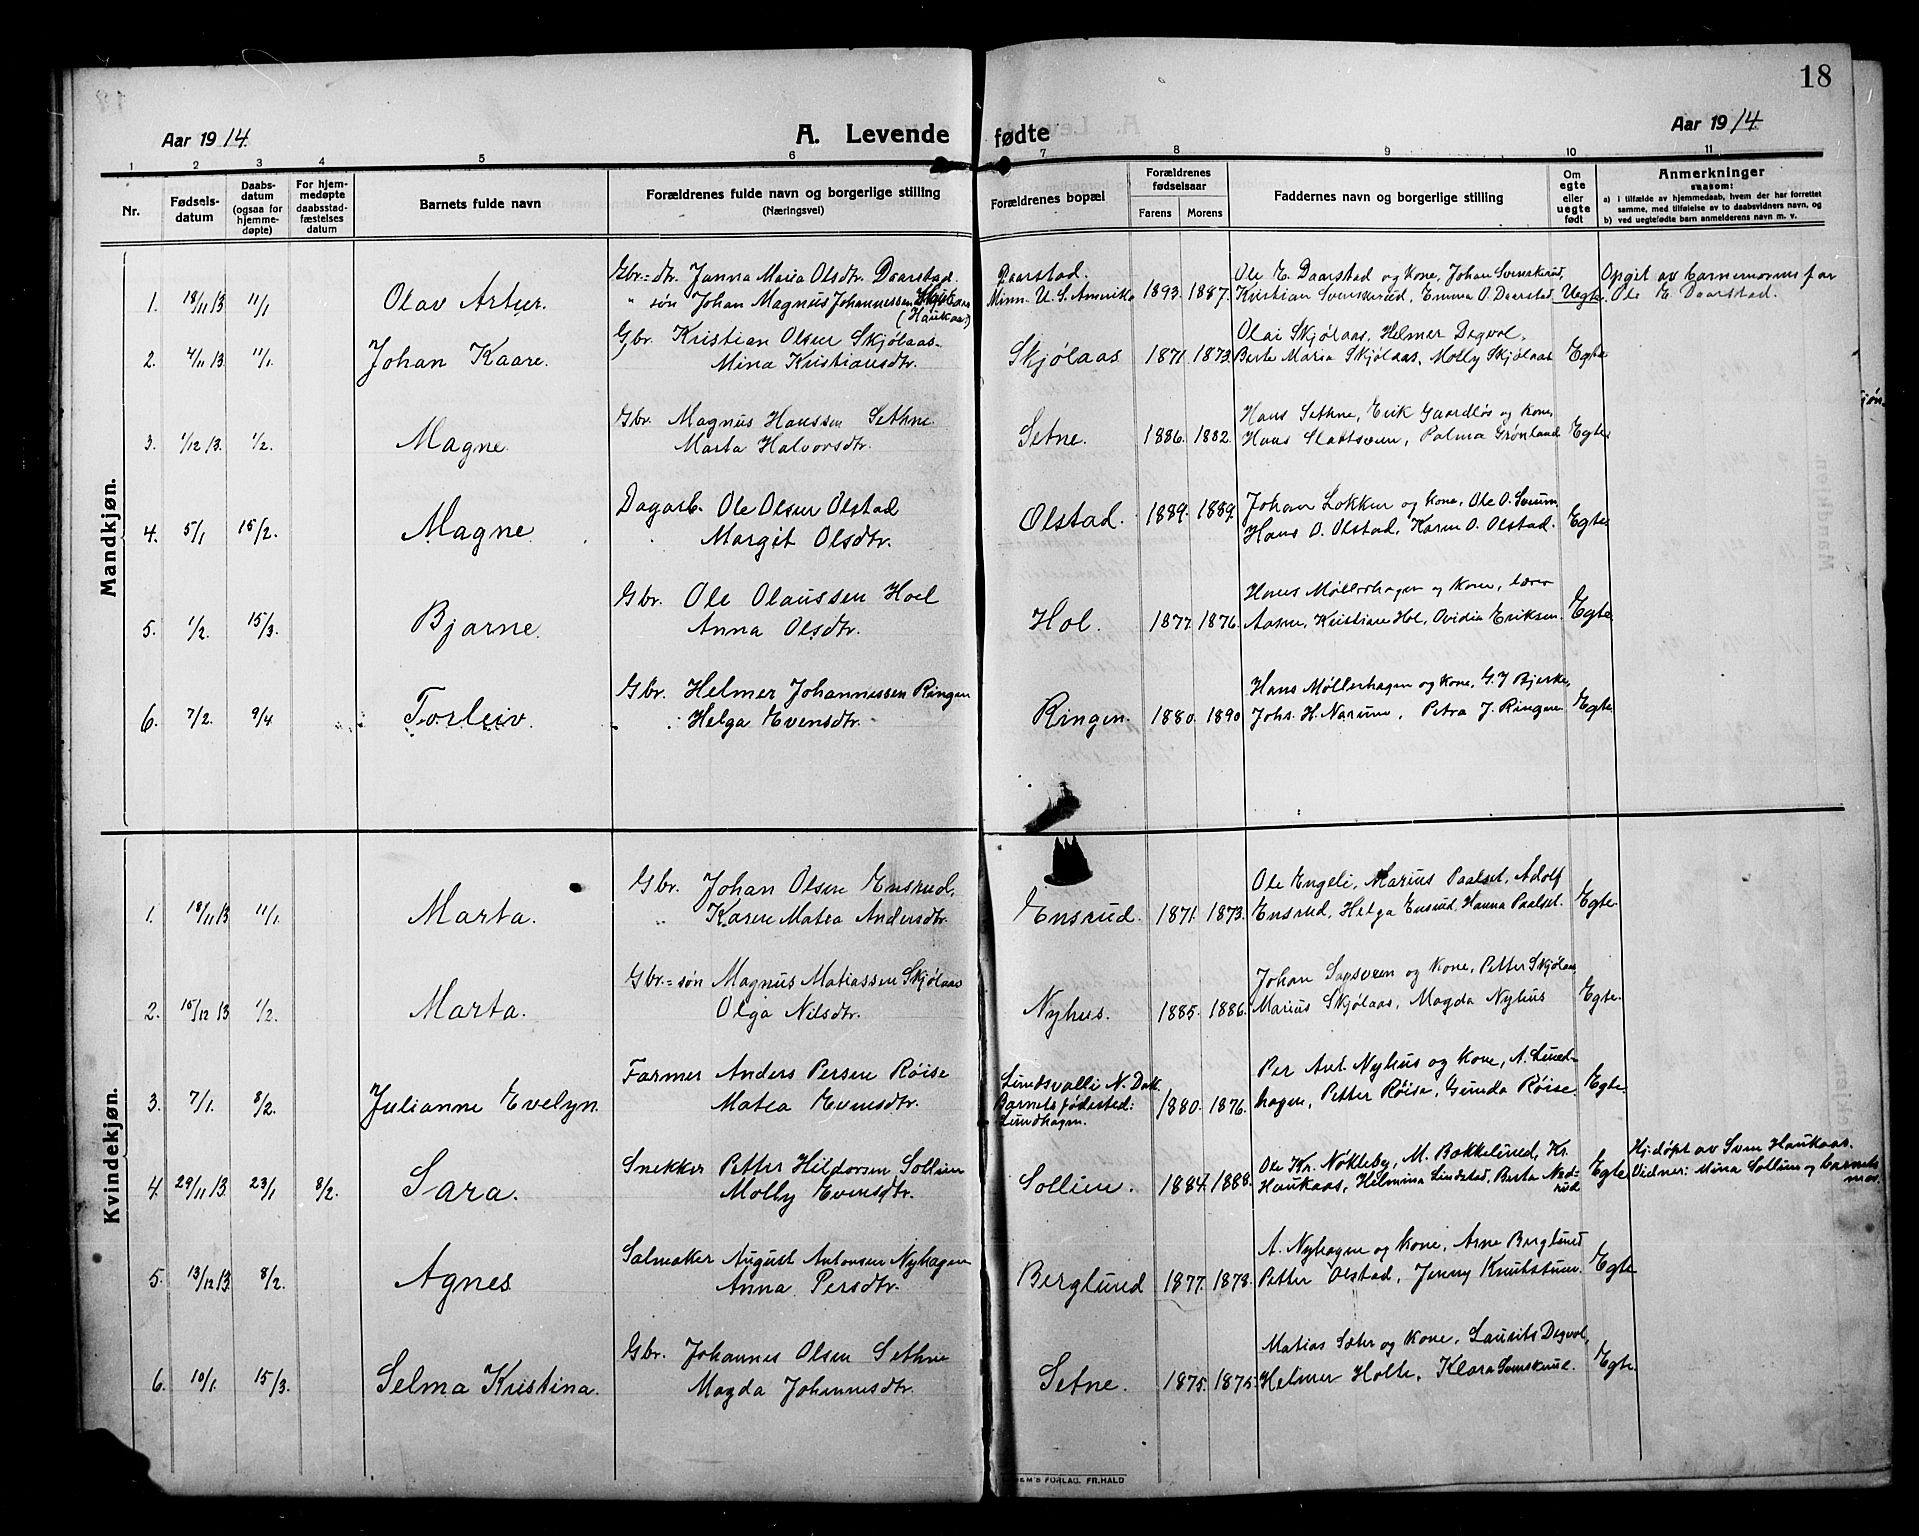 18
Aar 1914.
A. Levende fødte
Aar 1914.
1 2 3 4 5 6 7 8 9 10 11
Nr.
Fødsels-
datum
Daabs-
datum
(ogsaa for
hjemme-
døpte)
For hjem-
medøpte
daabsstad-
fæstelses
datum
Barnets fulde navn
Forældrenes fulde navn og borgerlige stilling
(Næringsvei)
Forældrenes bopæl
Forældrenes
fødselsaar
Farens Morens
Faddernes navn og borgerlige stilling
Om
egte
eller
uegte
født
Anmerkninger
saasom:
a) i tilfælde av hjemmedaab, hvem der har forrettet
samme, med tilføielse av to daabsvidners navn, og
b) ved uegtefødte barn anmelderens navn m. v.
Mandkjøn.
Gbr.=dtr. Janna Maria Olsdtr. Daarstad. Daarstad. Ole E. Daarstad og kone, Johan Svenskerud, Opgit av barnemorens far
1. 18/11 13 11/1 Olav Artur. " søn Johan Magnus Johannessen Minn. U. S. Amerika 1893. 1887. Kristian Svenskerud, Emma O. Daarstad. Uegte. Ole E. Daarstad.
(Haukaas)
Gbr. Kristian Olsen Skjølaas. Olai Skjølaas, Helmer Degvol,
2. 4/11 13 11/1. Johan Kaare. Mina Kristiansdtr. Skjølaas 1871. 1873. Berte Maria Skjølaas, Molly Skjølaas Egte
Gbr. Magnus Hanssen Sethne. Hans Sethne, Erik Gaardløs og kone,
3. 1/12 13. 1/2. Magne. Marta Halvorsdtr. Setne. 1886. 1882. Hans Slettsveen, Palma Grønland Egte
Dagarb. Ole Olsen Olstad Johan Løkken og kone, Ole O. Sveum
4. 5/1 15/2. Magne. Margit Olsdtr. Olstad. 1889. 1889. Hans O. Olstad, Karen O. Olstad. Egte
Gbr. Ole Olaussen Hoel Hans Møllerhagen og kone, lærer
5. 1/2. 15/3. Bjarne. Anna Olsdtr. Hol. 1877. 1876. Aasen, Kristiane Hol, Ovidia Eriksen. Egte
Gbr. Helmer Johannessen Ringen Hans Møllerhagen og kone, G. J. Bjerke,
6. 7/2. 9/4 Torleiv. Helga Evensdtr. Ringen. 1880. 1890. Johs. H. Narum, Petra J. Ringen Egte
Kvindekjøn.
Gbr. Johan Olsen Ensrud, Ole Engeli, Marius Paalset, Adolf
1. 18/11 13 11/1 Marta. " Karen Matea Andersdtr. Ensrud. 1871. 1873. Ensrud, Helga Ensrud, Hanna Paalset. Egte
Gbr.=søn Magnus Matiassen Skjølaas Johan Sagsveen og kone, Petter Skjølaas
2. 15/12 13 1/2. Marta. Olga Nilsdtr. Nyhus. 1885. 1886. Marius Skjølaas, Magda Nyhus Egte.
Farmer Anders Persen Røise Lundsvalle N. Dak. Per Ant. Nyhus og kone, A. Lund-
3. 7/1. 8/2. Julianne Evelyn. Matea Evensdtr. Barnets fødested: 1880. 1876. hagen, Petter Røise, Gunda Røise. Egte
Lundhagen.
Snekker Petter Hildorsen Sollien Ole Kr. Nøkleby, M. Bakkelund, Kr. Hj.døpt av Sven Haukaas.
4. 29/11 13 23/1 8/2. Sara. Molly Evensdtr. Sollien. 1884. 1888. Haukaas, Helmina Lindstad, Berta Ned- Egte Vidner: Mina Sollien og barnets
rud mor.
Salmaker August Antonsen Nyhagen A. Nyhagen og kone, Arne Berglund
5. 13/12 13 8/2. Agnes Anna Persdtr. Berglund 1877. 1878. Petter Olstad, Jenny Knutstuen. Egte
Gbr. Johannes Olsen Sethne Matias Sæter og kone, Laurits Degvol,
6. 10/1. 15/3. Selma Kristina. Magda Johannesdtr. Setne. 1875. 1875. Helmer Holte, Klara Svenskerud. Egte
FORLAG. FR. HALD